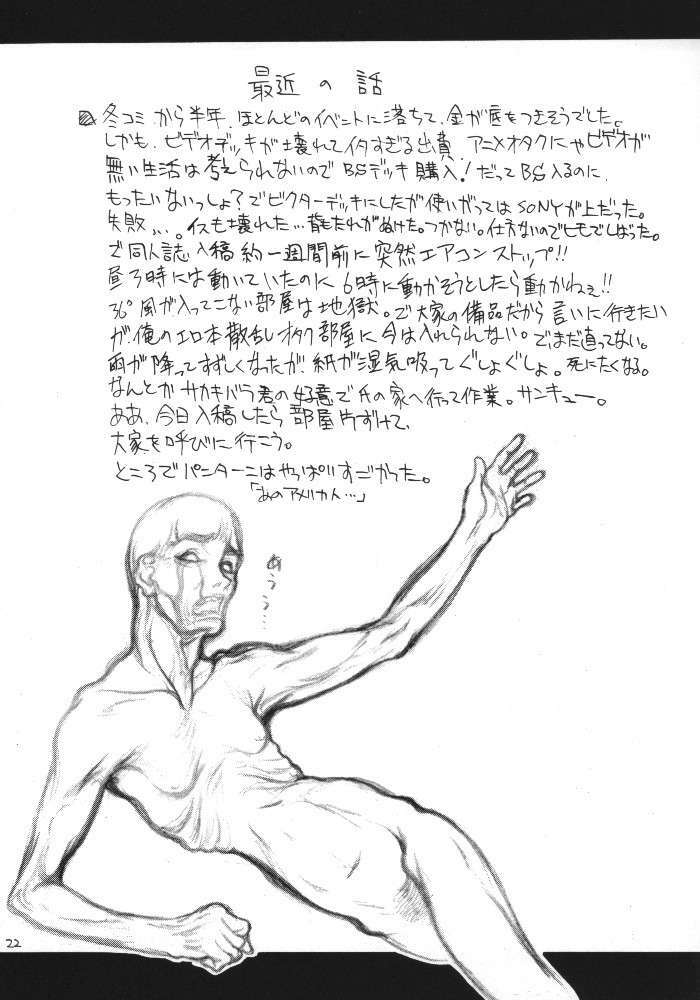 最近の話
冬コミから半年、ほとんどのイベントに落ちて、金が底をつきそうでした。
しかも、ビデオデッキが壊れてイタすぎる出費。アニメオタクにゃビデオが
無い生活は考えられないのでBSデッキ購入!だってBS入るのに、
もったいないっしょ?でビクターデッキにしたが使いがってはSONYが上だった。
失敗、、、。イスも壊れた…背もたれがぬけた。つかない。仕方ないのでヒモでしばった。
で同人誌入稿約一週間前に突然エアコンストップ!!
昼3時には動いていたのに6時に動かそうとしたら動かねぇ!!
36°風が入ってこない部屋は地獄。で大家の備品だから言いに行きたい
が、俺のエロ本散乱オタク部屋に今は入れられない。でまだ直ってない。
雨が降ってすずしくなったが、紙が湿気吸ってぐしょぐしょ。死にたくなる。
なんとかサカキバラ君の好意で氏の家へ行って作業。サンキュー。
ああ、今日入稿したら部屋片ずけて、
大家を呼びに行こう。
ところでパンターニはやっぱりすごかった。
「あのアメリカ人…」
あうう…
22